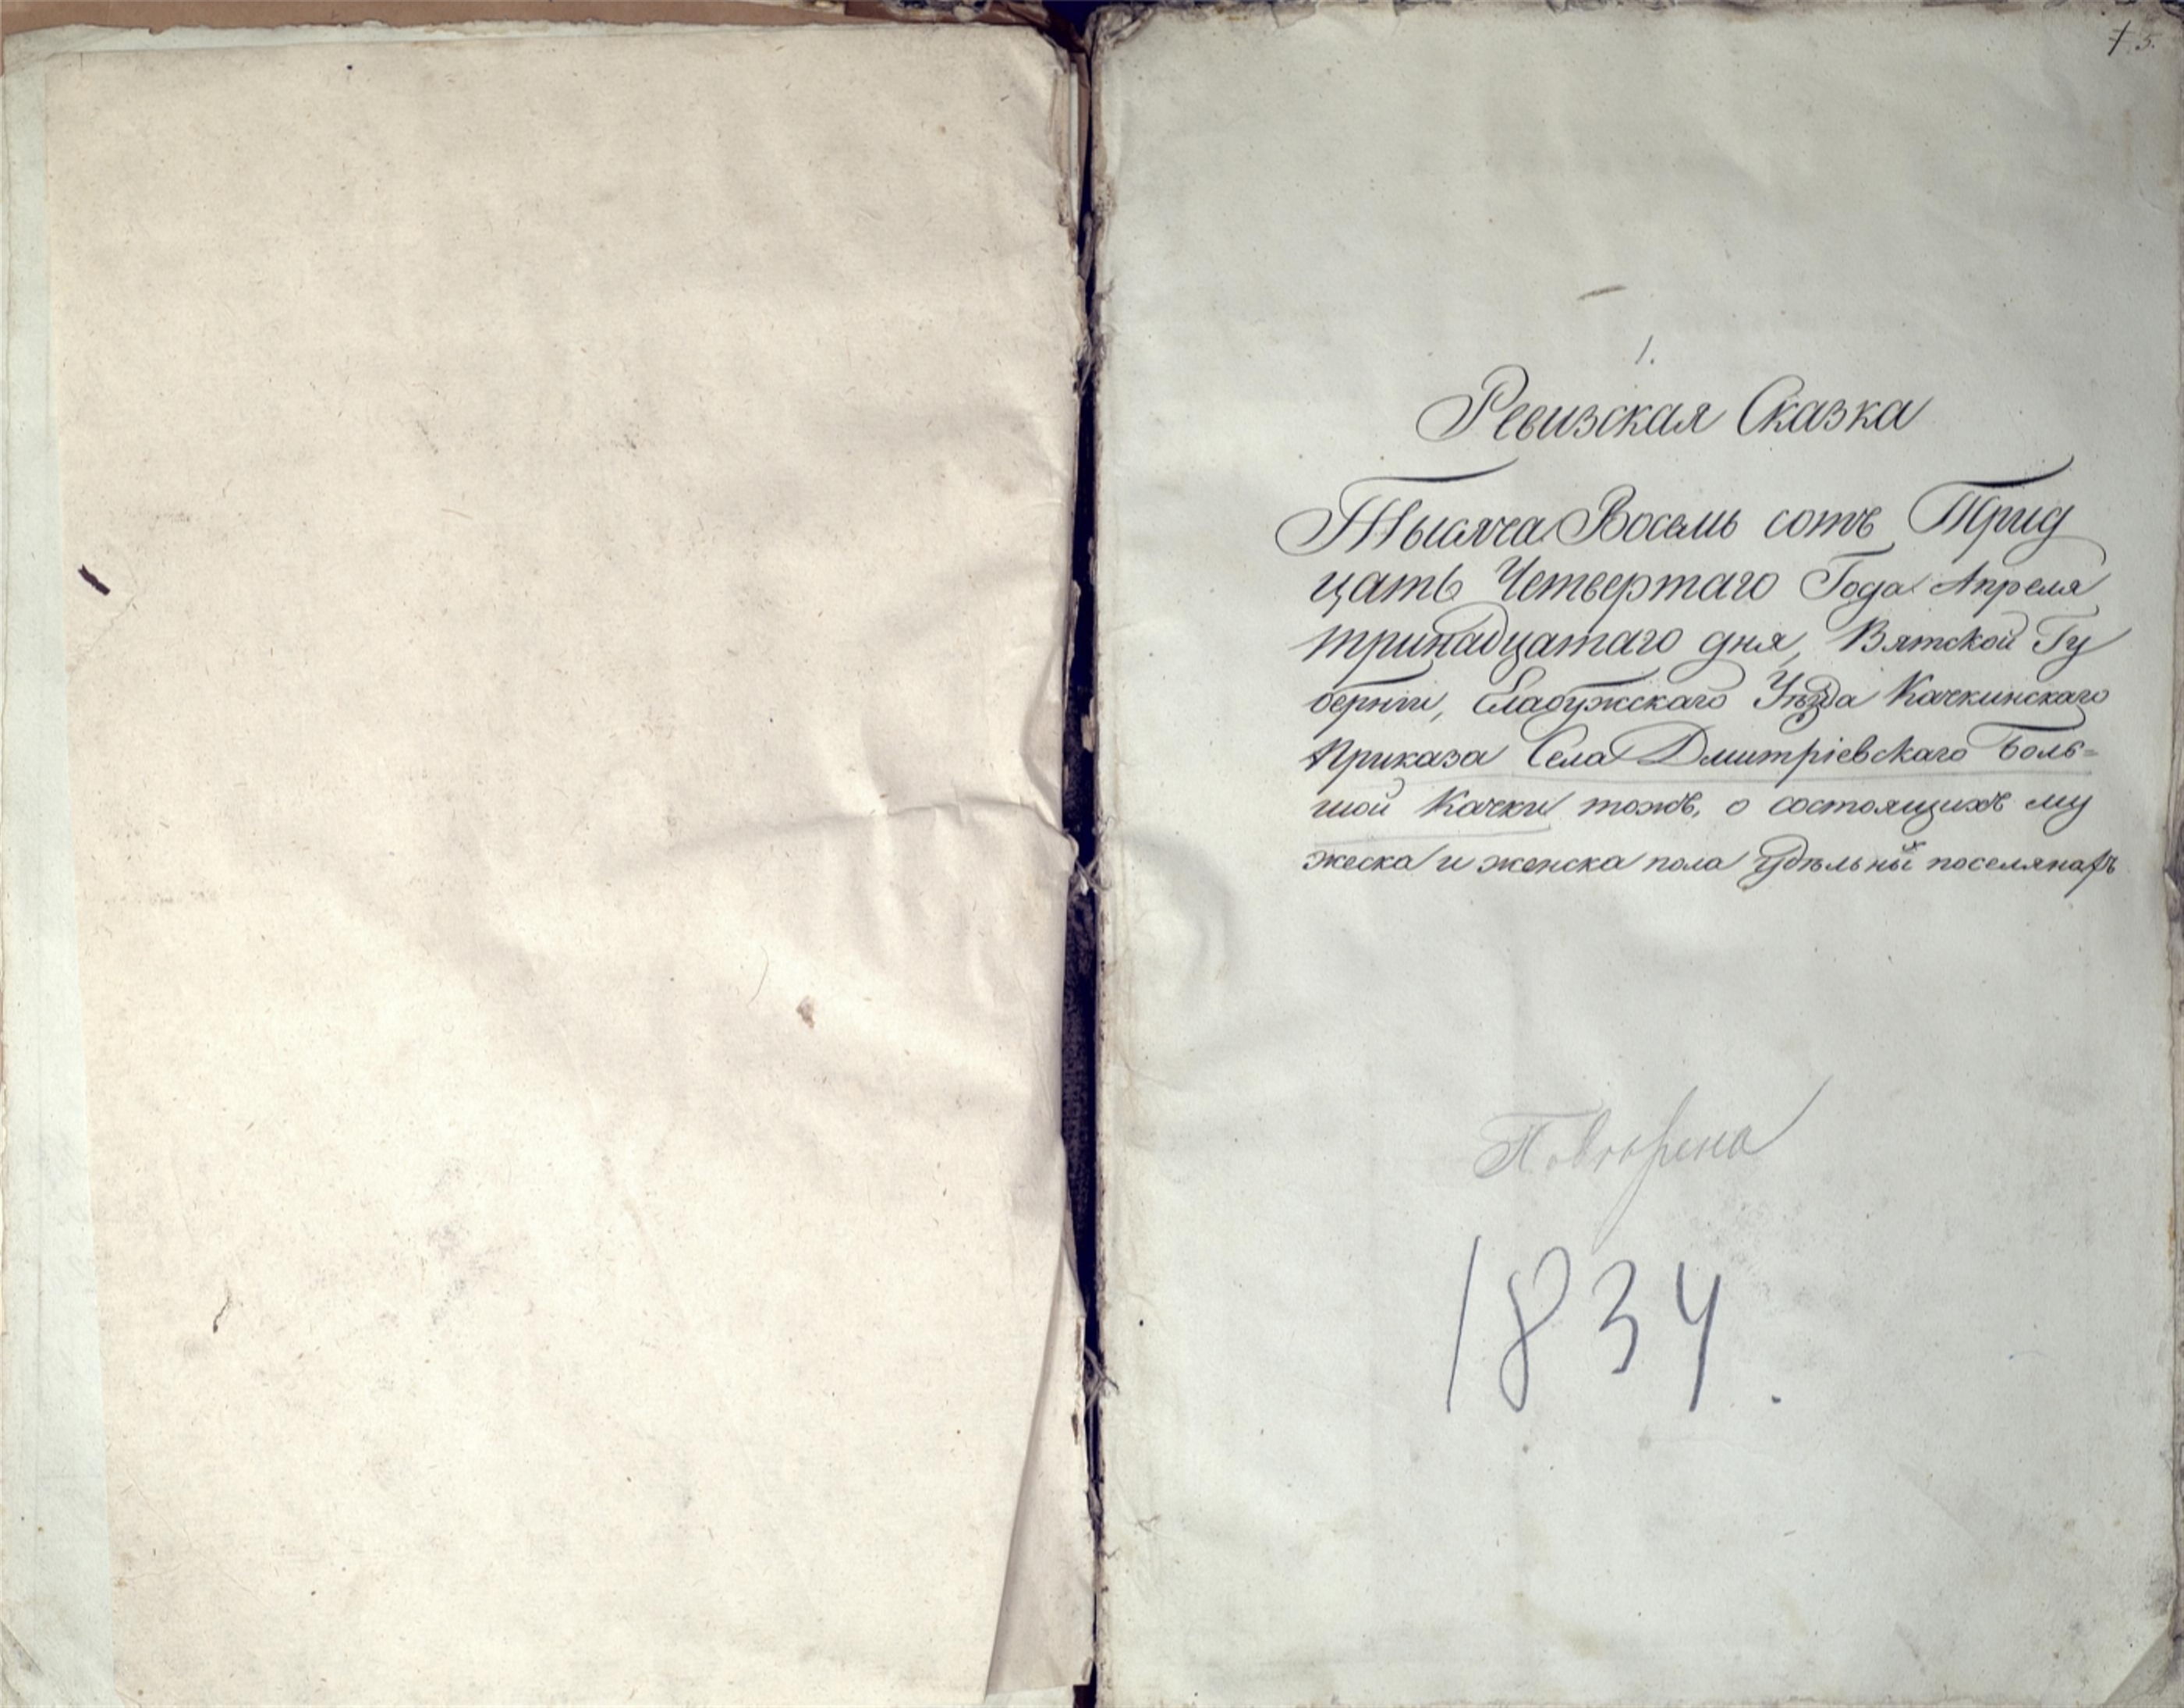 1.
Ревизская Сказка
Тысяча Восемь сотъ Трид
цать Четвертаго Года Апреля
тринадцатаго дня, Вятской Гу
берніи, Елабужскаго Уѣзда Качкинскаго
Приказа Села Дмитріевскаго Боль=
шой Качки тожъ, о состоящихъ му
жеска и женска пола Удѣльных поселянахъ
Повѣрена
1834.